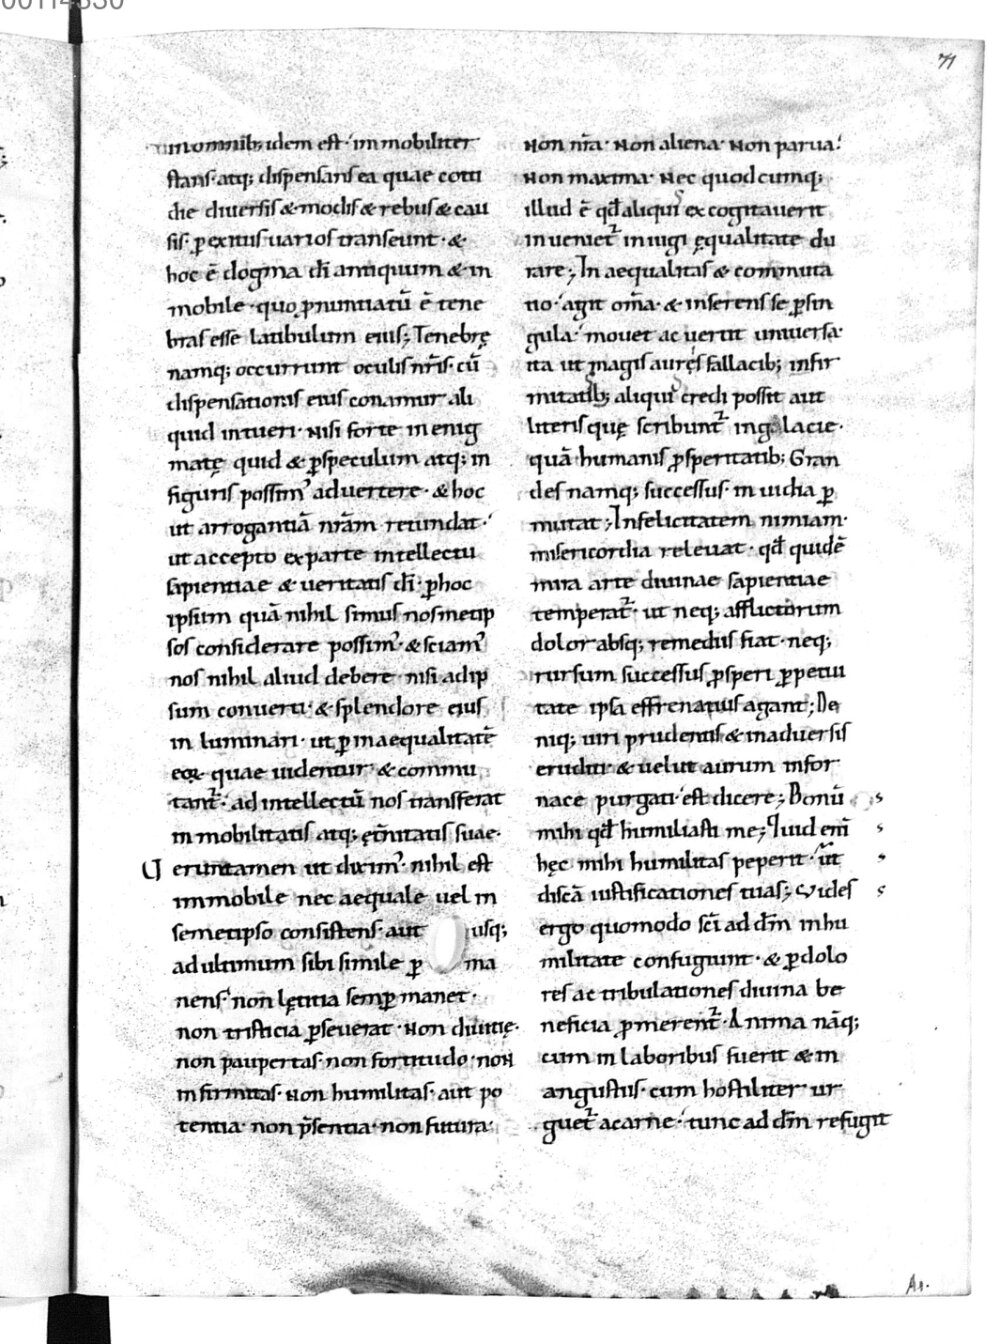 00114330
71
inomnib; idem est· immobiliter
stans· atq; dispensans ea quae coti
die diuersis & modis & rebus & cau
sis· p̱ exitus uarios transeunt· &
hoc ē dogma dī antiquum & in
mobile· quo p̱nuntiatū ē tene
bras esse latibulum eius; Tenebrę
namq; occurrunt oculis nr̄is· cū
dispensationis eius conamur ali
quid intueri· Nisi forte in enig
matę quid & p̱speculum atq; in
figuris possim᾽ aduertere· & hoc
ut arrogantiā nrām retundat·
ut accepto exparte intellectu
sapientiae & ueritatis dī· p̱hoc
ipsum quā nihil simus nosmetip
sos considerare possim᾽· & sciam᾽
nos nihil aliud debere· nisi adip
sum conuerti· & splendore eius
in luminari· ut p̱ inaequalitatē
eoꝝ quae uidentur· & commu
tant᷑· ad intellectū nos transferat
in mobilitatis atq; ęt̄nitatis suae·
Ueruntamen ut dixim᾽· nihil est
immobile nec aequale uel in
semetipso consistens· aut usq;
ad ultimum sibi simile p̱ ma
nens· non lętitia semp̱ manet·
non tristicia p̱seuerat· Non diuitię·
non paupertas· non fortitudo· non
infirmitas· Non humilitas· aut po
tentia· non p̄sentia· non futura·
Non nr̄a· Non aliena· Non parua·
Non maxima· Nec quodcumq;
illud ē qd̄ aliquis excogitauerit
inueniet᷑ iniugi ęqualitate du
rare; In aequalitas & commuta
tio· agit om̄a· & inserens se p̱sin
gula· mouet ac uertit uniuersa·
ita ut magis aures fallacib; infir
mitatib; aliquis credi possit aut
literis quę scribunt᷑ in galacie·
quā humanis p̱speritatib; Gran
des namq; successus· inuidia p̱
mutat; Infelicitatem nimiam·
misericordia releuat· qd̄ quidē
mira arte diuinae sapientiae
temperat᷑· ut neq; afflictorum
dolor absq; remediis fiat· neq;
rursum successus p̱speri p̱petui
tate ipsa effrenatius agant; De
niq; uiri prudentis & inaduersis
eruditi· & uelut aurum infor
nace purgati· est dicere; Bonū
mihi qd̄ humiliasti me; Quid enī
hęc mihi humilitas peperit· ut
discā iustificationes tuas; Vides
ergo quomodo sc̄i ad dm̄ inhu
militate confugiunt· & p̱dolo
res ac tribulationes diuina be
neficia p̱merent᷑· Anima nāq;
cum in laboribus fuerit & in
angustiis· cum hostiliter ur
guet᷑ acarne· tunc ad dm̄ refugit